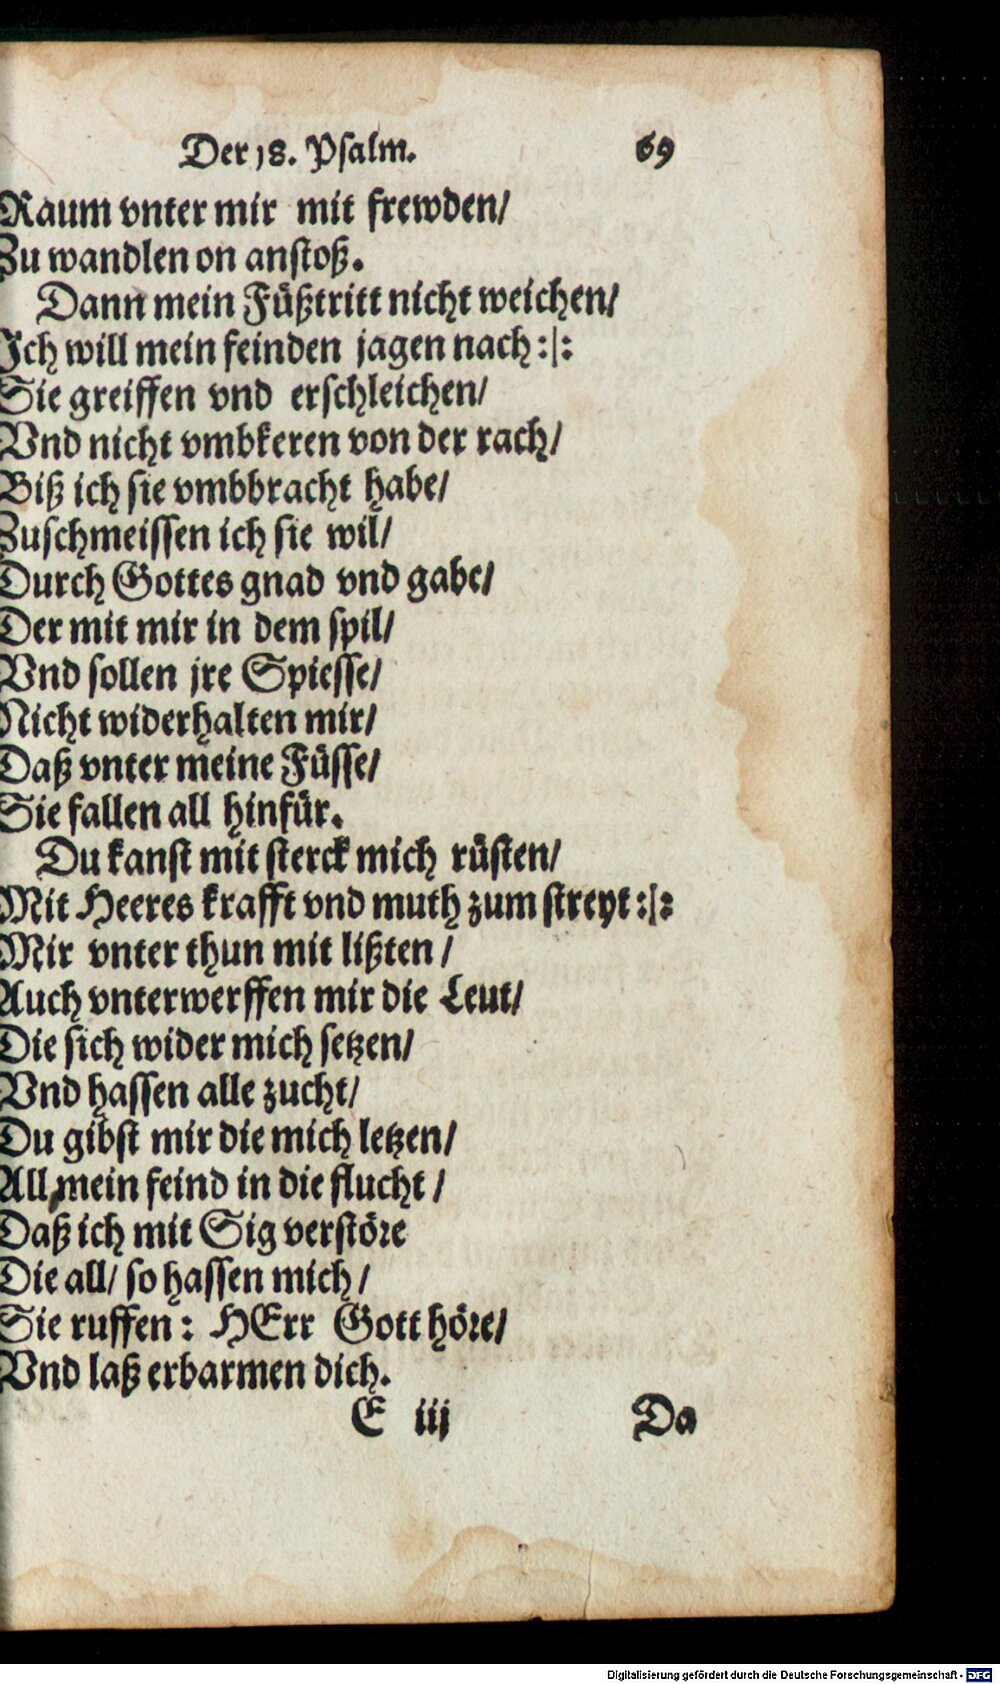 Der 18. Psalm. 69
Raum vnter mir mit frewden/
Zu wandlen on anstoß.
Dann mein Füßtritt nicht weichen/
Ich will mein feinden jagen nach :|:
Sie greiffen vnd erschleichen/
Vnd nicht vmbkeren von der rach/
Biß ich sie vmbbracht habe/
Zuschmeissen ich sie wil/
Durch Gottes gnad vnd gabe/
Der mit mir in dem spil/
Vnd sollen jre Spiesse/
Nicht widerhalten mir/
Daß vnter meine Füsse/
Sie fallen all hinfür.
Du kanst mit sterck mich rüsten/
Mit Heeres krafft vnd muth zum streyt :|:
Mir vnter thun mit lißten /
Auch vnterwerffen mir die Leut/
Die sich wider mich setzen/
Vnd hassen alle zucht/
Du gibst mir die mich letzen/
All mein feind in die flucht /
Daß ich mit Sig verstöre
Die all/ so hassen mich/
Sie ruffen: HErr Gott höre/
Vnd laß erbarmen dich.
E iij Da
Digitalisierung gefördert durch die Deutsche Forschungsgemeinschaft - DFG